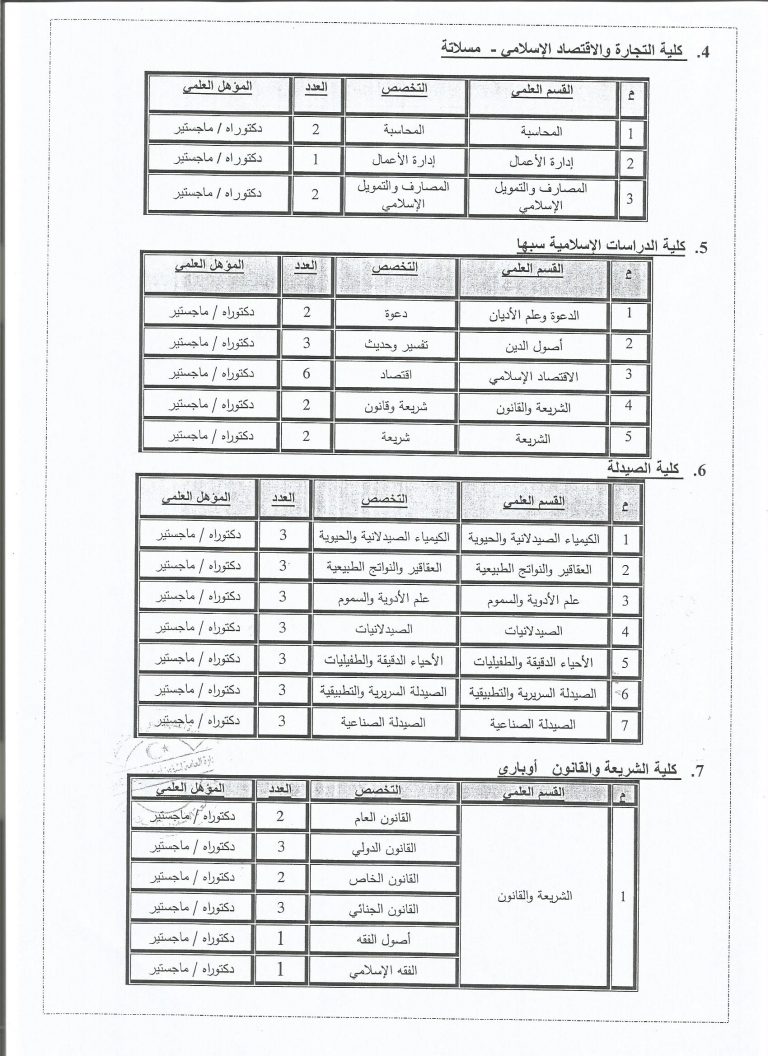 4. كلية التجارة والاقتصاد الإسلامي - مسلاتة
م القسم العلمي التخصص العدد المؤهل العلمي
1 المحاسبة المحاسبة 2 دكتوراه / ماجستير
2 إدارة الأعمال إدارة الأعمال 1 دكتوراه / ماجستير
3 المصارف والتمويل الإسلامي المصارف والتمويل الإسلامي 2 دكتوراه / ماجستير
5. كلية الدراسات الإسلامية سبها
م القسم العلمي التخصص العدد المؤهل العلمي
1 الدعوة وعلم الأديان دعوة 2 دكتوراه / ماجستير
2 أصول الدين تفسير وحديث 3 دكتوراه / ماجستير
3 الاقتصاد الإسلامي اقتصاد 6 دكتوراه / ماجستير
4 الشريعة والقانون شريعة وقانون 2 دكتوراه / ماجستير
5 الشريعة شريعة 2 دكتوراه / ماجستير
6. كلية الصيدلة
م القسم العلمي التخصص العدد المؤهل العلمي
1 الكيمياء الصيدلانية والحيوية الكيمياء الصيدلانية والحيوية 3 دكتوراه / ماجستير
2 العقاقير والنواتج الطبيعية العقاقير والنواتج الطبيعية 3 دكتوراه / ماجستير
3 علم الأدوية والسموم علم الأدوية والسموم 3 دكتوراه / ماجستير
4 الصيدلانيات الصيدلانيات 3 دكتوراه / ماجستير
5 الأحياء الدقيقة والطفيليات الأحياء الدقيقة والطفيليات 3 دكتوراه / ماجستير
6 الصيدلة السريرية والتطبيقية الصيدلة السريرية والتطبيقية 3 دكتوراه / ماجستير
7 الصيدلة الصناعية الصيدلة الصناعية 3 دكتوراه / ماجستير
7. كلية الشريعة والقانون أوباري
م القسم العلمي التخصص العدد المؤهل العلمي
1 الشريعة والقانون القانون العام 2 دكتوراه / ماجستير
القانون الدولي 3 دكتوراه / ماجستير
القانون الخاص 2 دكتوراه / ماجستير
القانون الجنائي 3 دكتوراه / ماجستير
أصول الفقه 1 دكتوراه / ماجستير
الفقه الإسلامي 1 دكتوراه / ماجستير